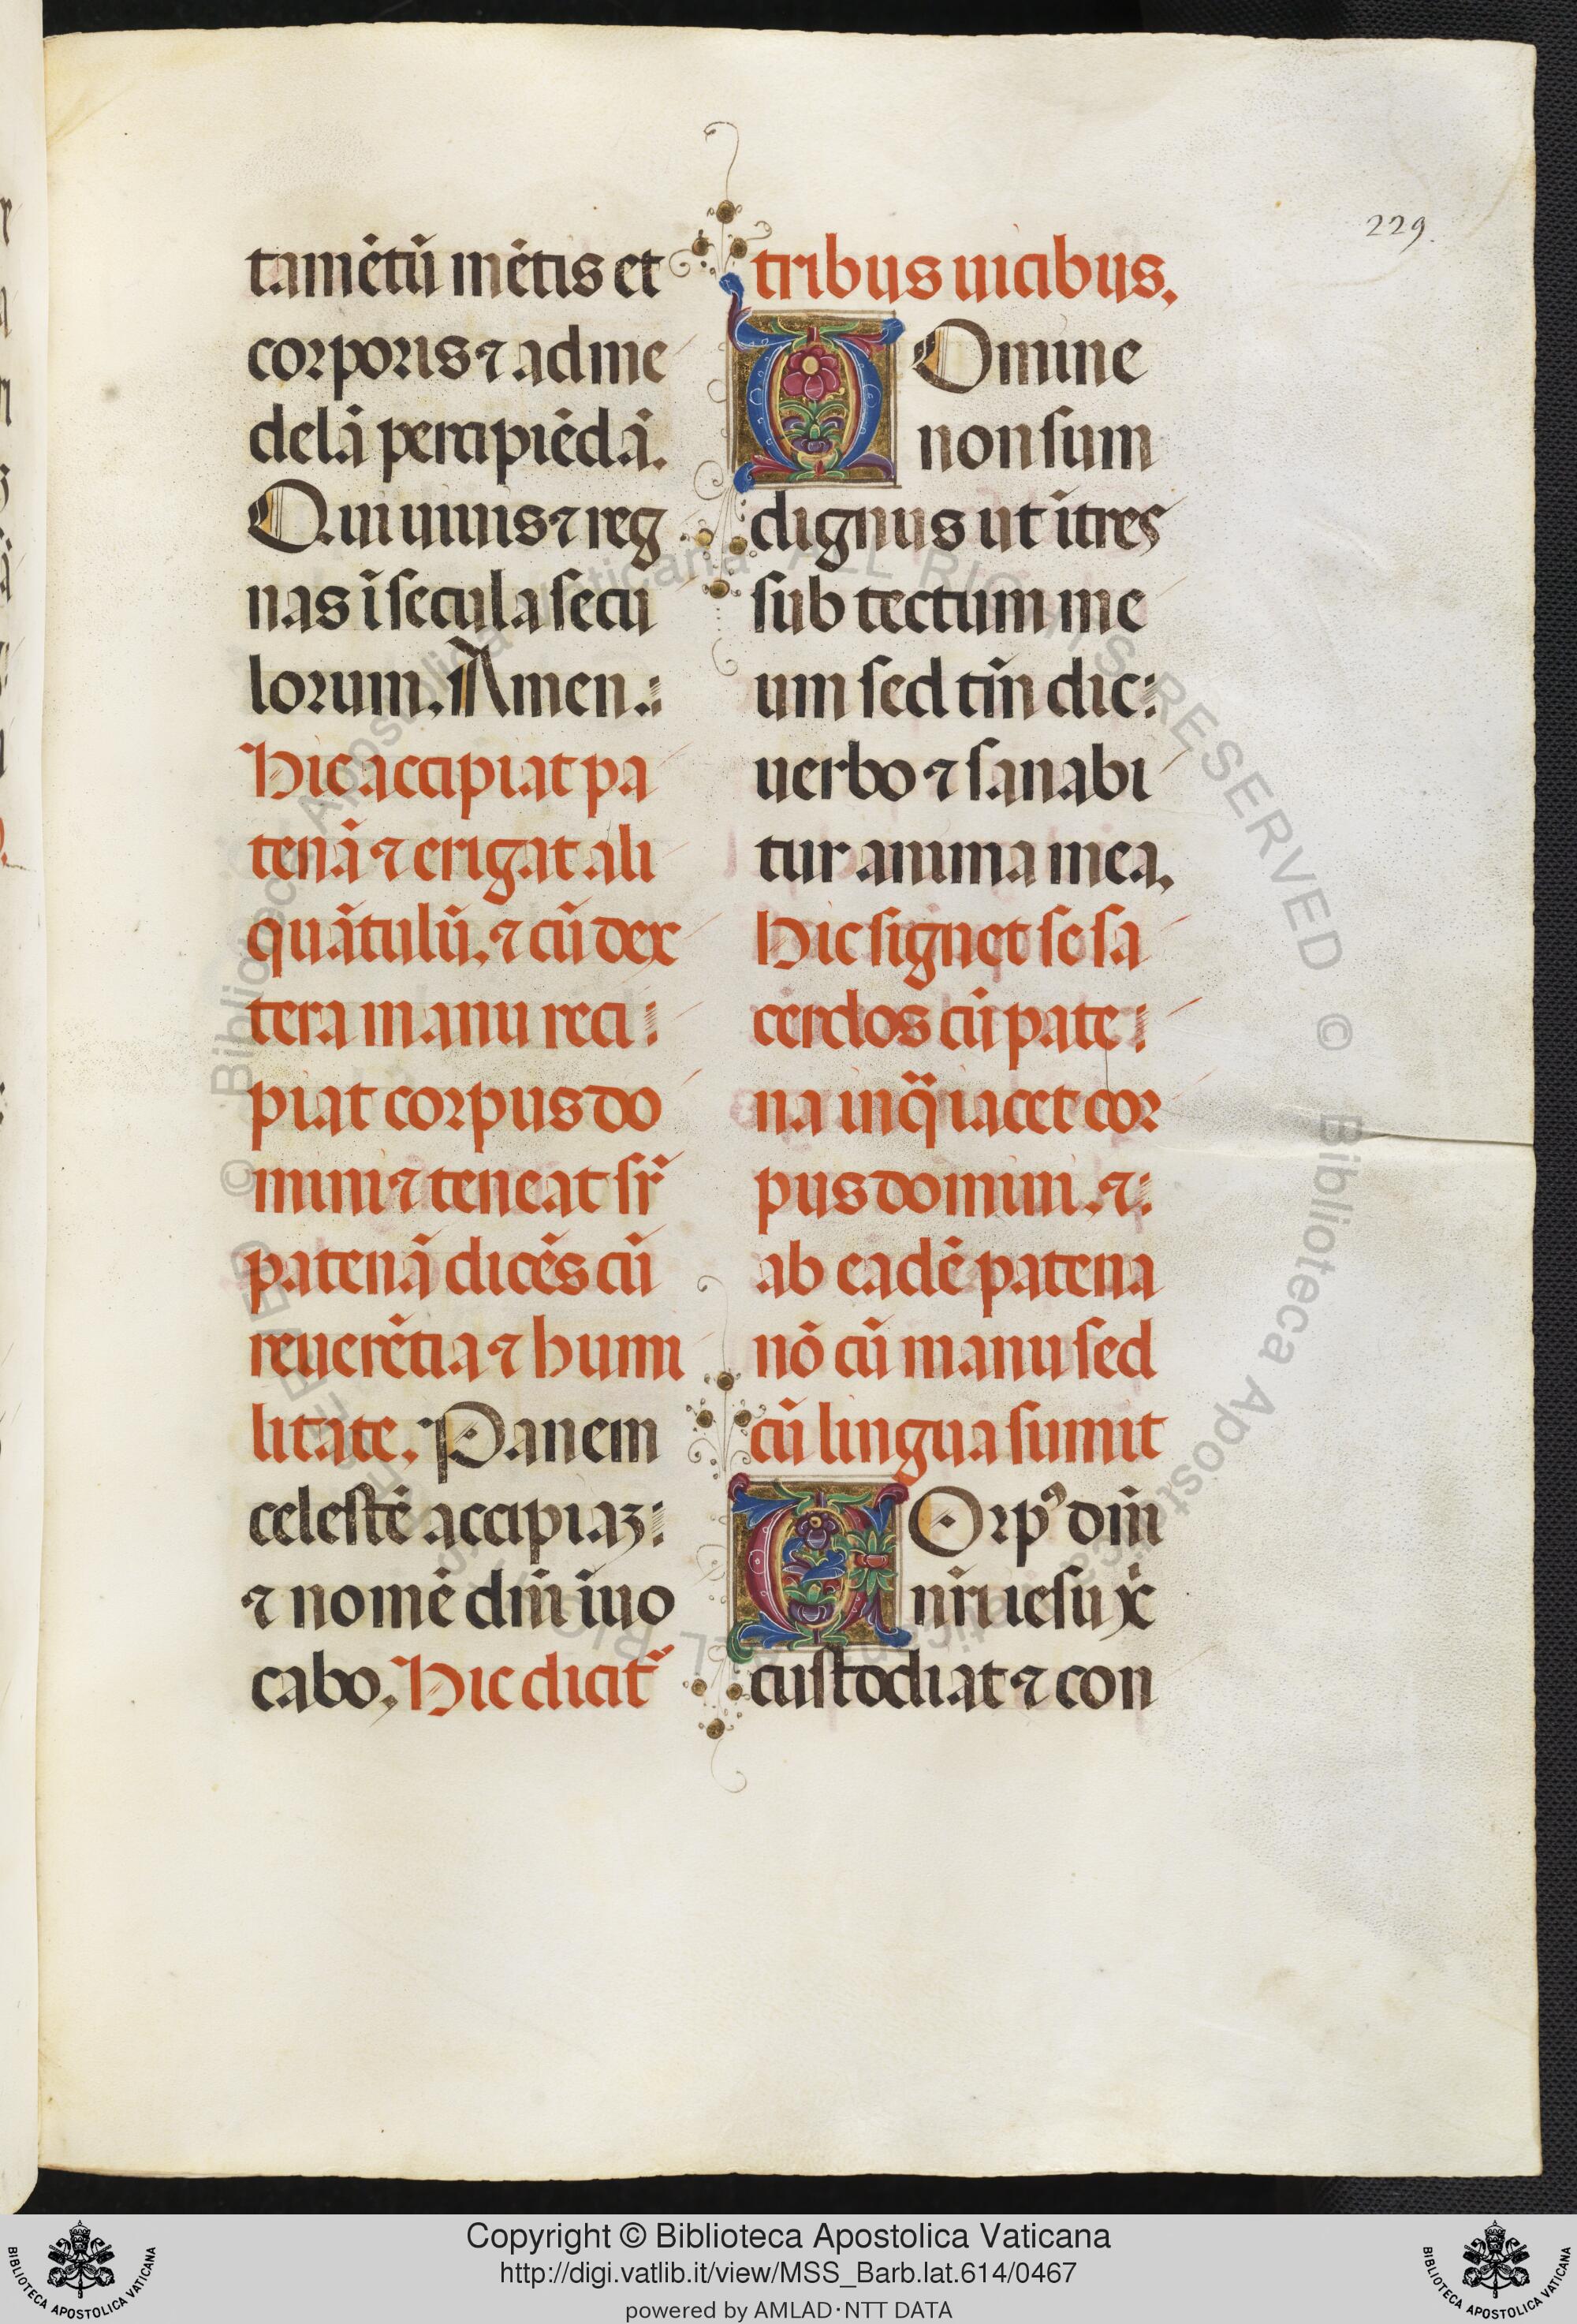 229.
tamētū mētis et
corporis ⁊ ad me
delā percipiēdā.
Qui uiuis ⁊ reg
nas ī secula secu
lorum. Amen.:
Hic accipiat pa
tenā ⁊ erigat ali
quātulū. ⁊ cū dex
tera manu reci:
piat corpus do
mini ⁊ teneat sr̄
patenā dicēs cū
reuerētia ⁊ humi
litate. Panem
celestē accipiaꝫ:
⁊ nomē dn̄i īuo
cabo. Hic dicit᷑
tribus uicibus.
DOmine
non sum
dignus ut ītres
sub tectum me
um sed tm̄ dic:
uerbo ⁊ sanabi
tur anima mea.
Hic signet se sa
cerdos cū pate:
na in q̄ iacet cor
pus domini. ⁊:
ab eadē patena
nō cū manu sed
cū lingua sumit
COrpꝰ dn̄i
nr̄i iesu xp̄i
custodiat ⁊ con
© Biblioteca Apostolica Vaticana ALL RIGHTS RESERVED © Biblioteca Apostolica Vaticana ALL RIGHTS RESERVED
Copyright © Biblioteca Apostolica Vaticana
http://digi.vatlib.it/view/MSS_Barb.lat.614/0467
powered by AMLAD·NTT DATA
BIBLIOTECA APOSTOLICA VATICANA
BIBLIOTECA APOSTOLICA VATICANA